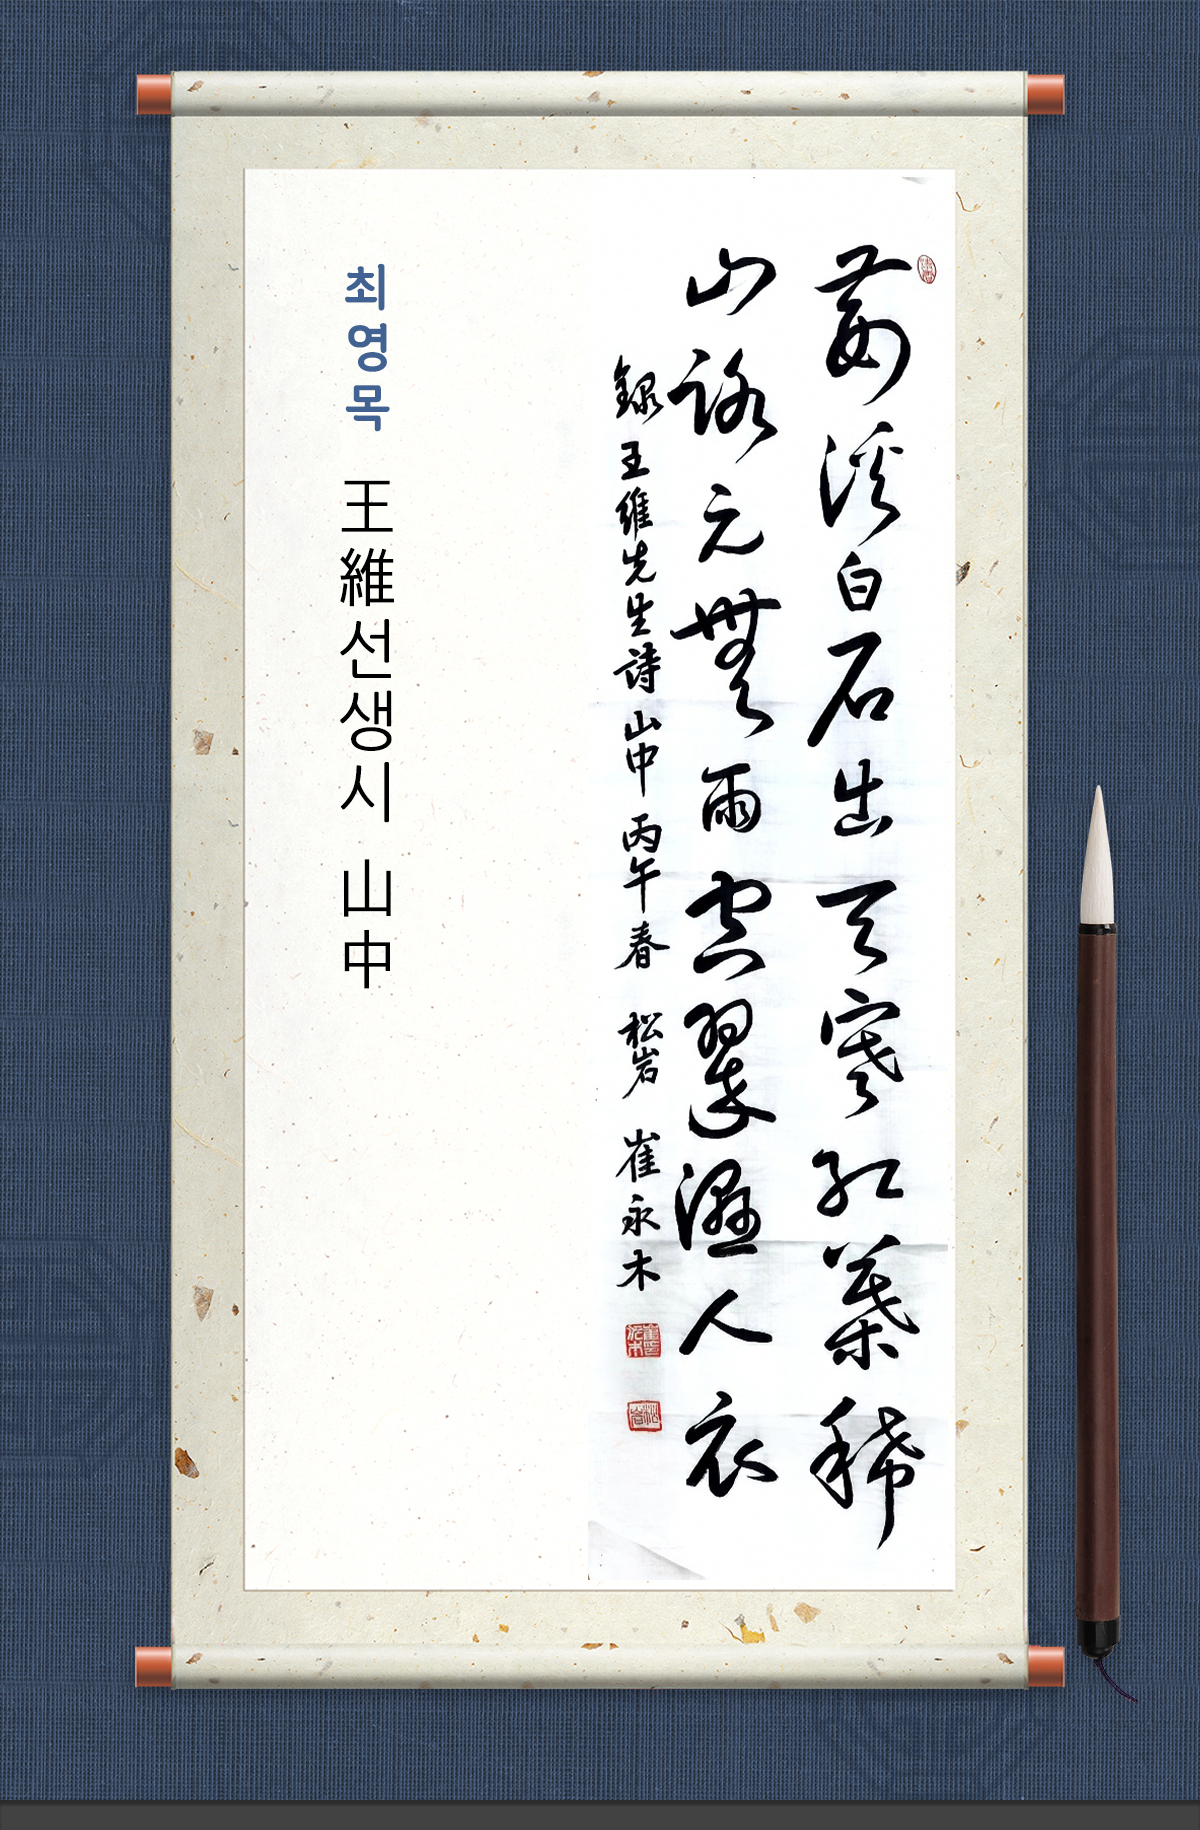 荊溪白石出天寒紅葉稀
山路元無雨空翠濕人衣
錄王維先生詩 山中 丙午春 松岩 崔永木
최영목 王維선생시 山中